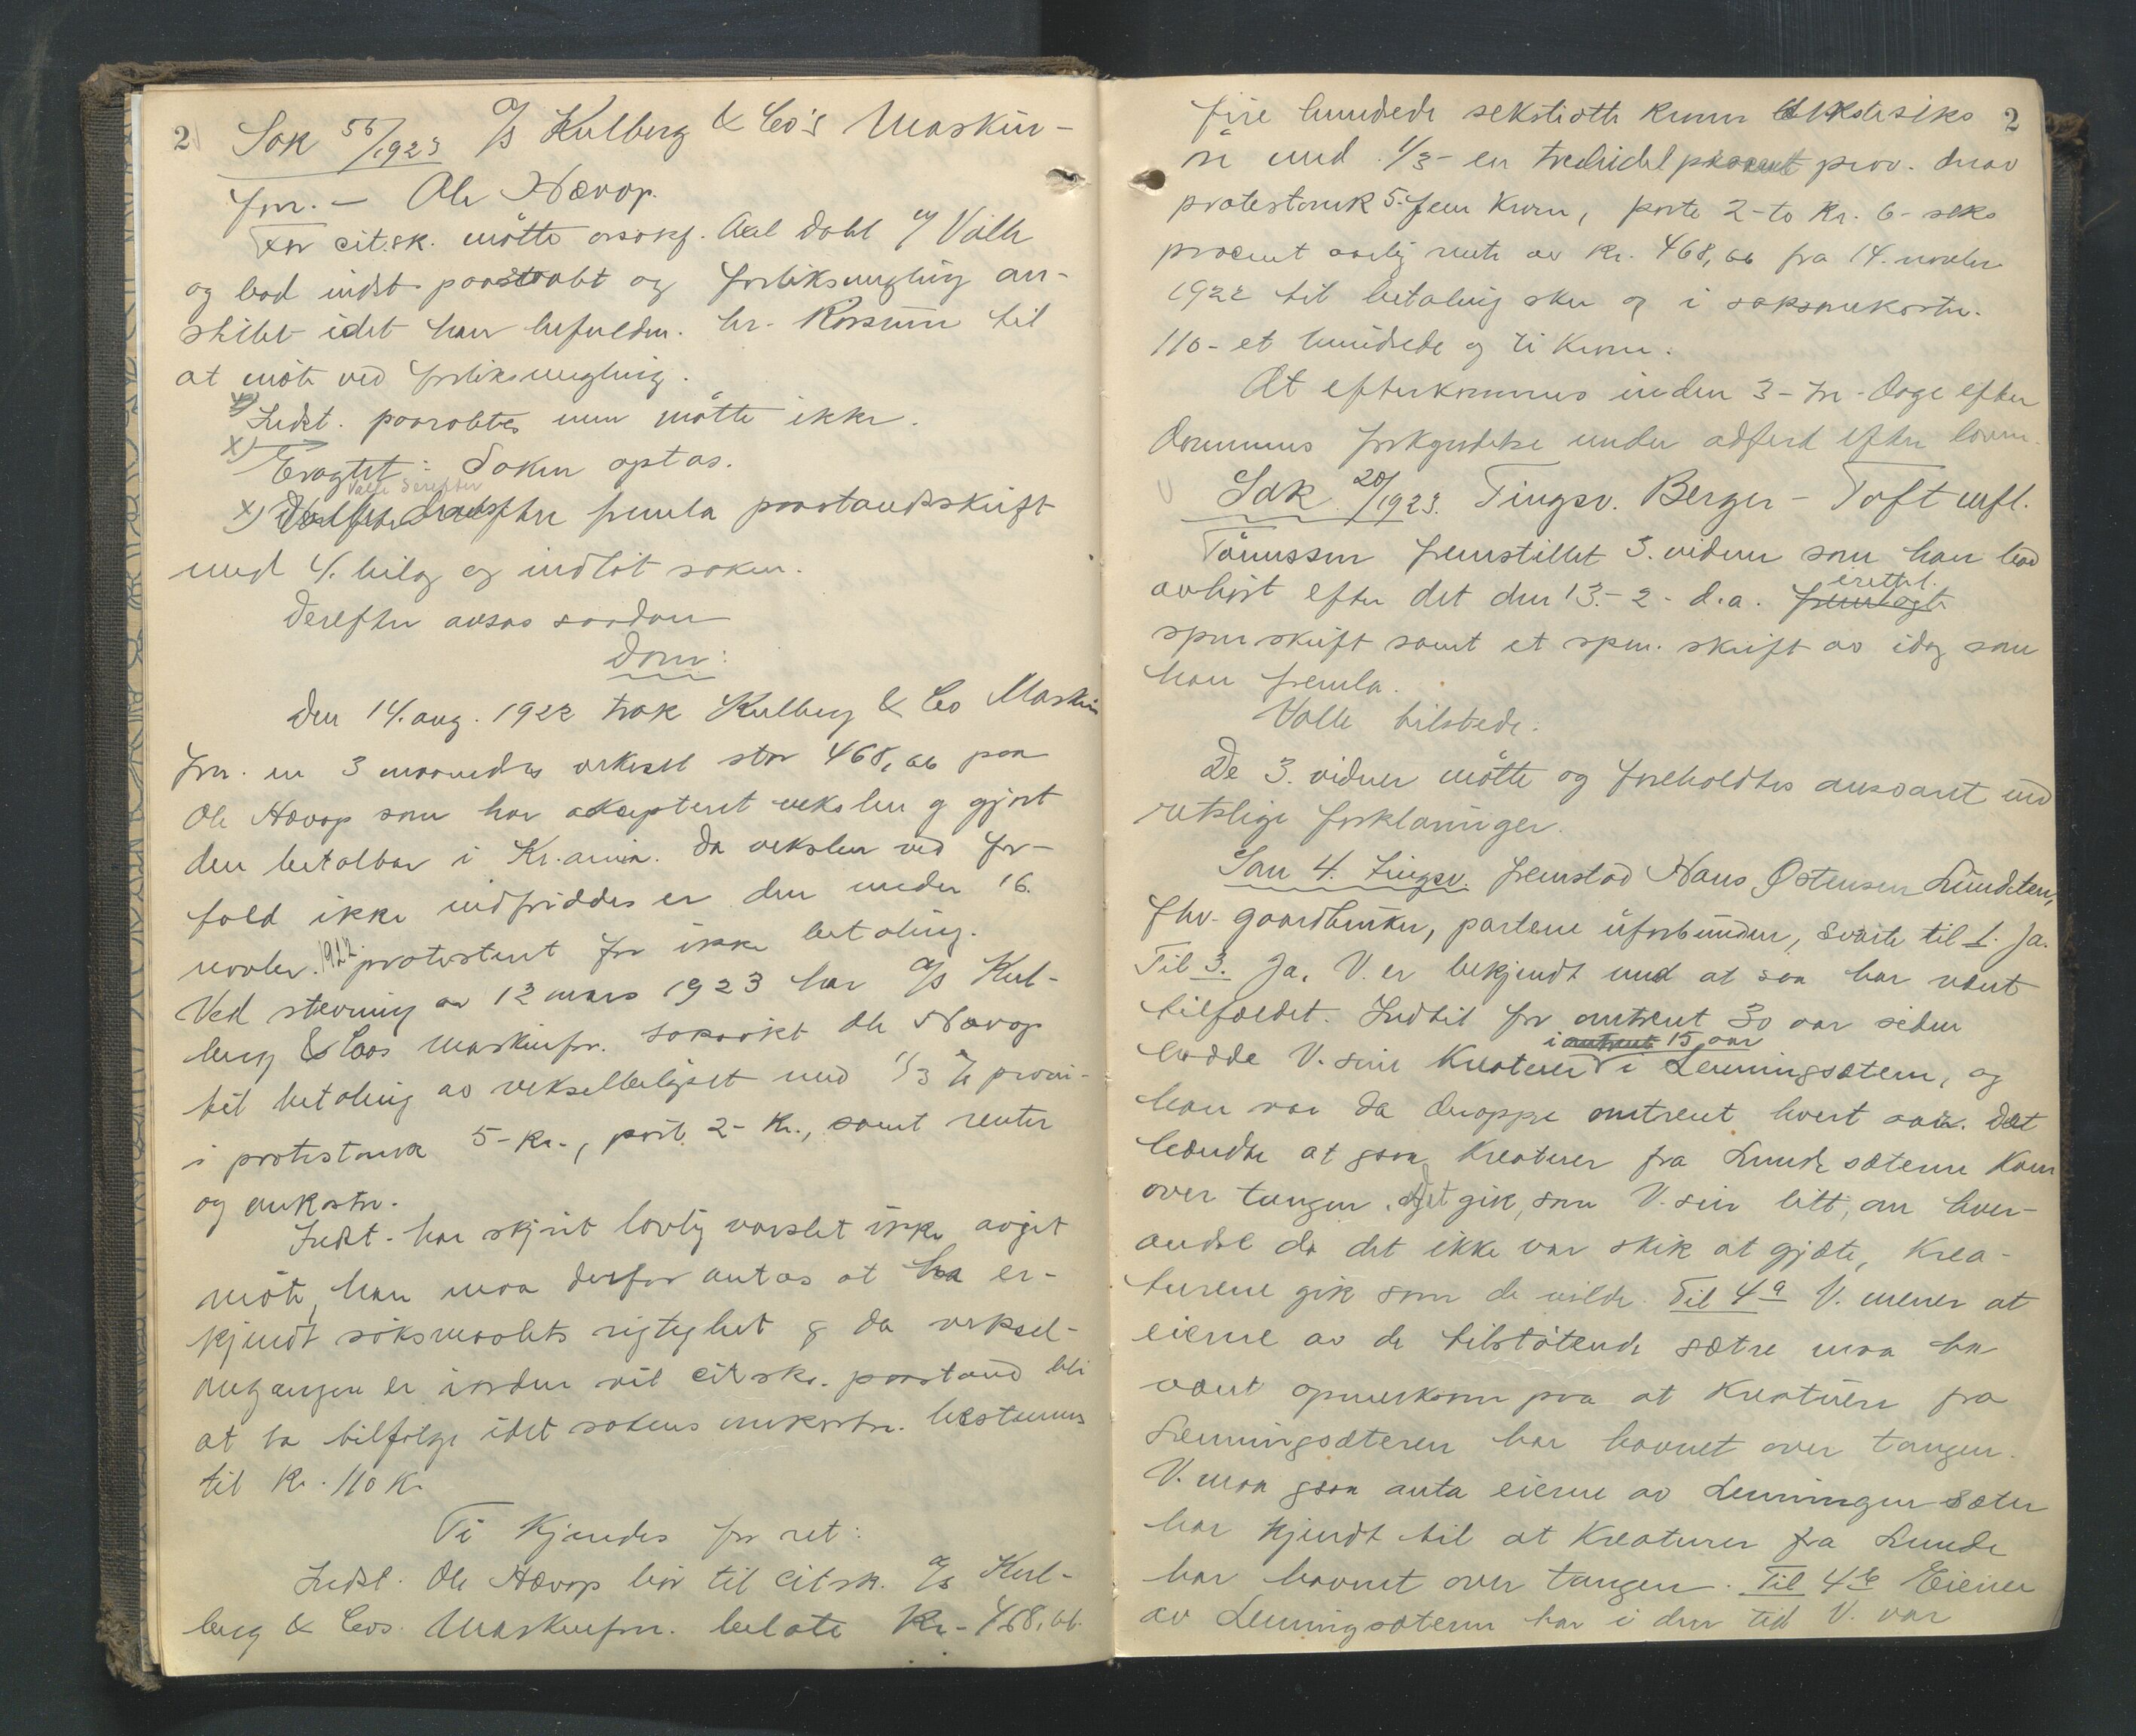 2
Sak 56/1923 A/S Kulberg & Co's Maskin-
forr. – Ole Hævop.
For cit.sk. møtte orsakf. Axel Dahl v/ Valle
og bad indst paaropt og forliksmegling an-
stillet idet han befuldm. hr. Rossum til
at møte ved forliksmegling.
Indst. paaroptes men møtte ikke.
x) Eragtet: Saken optas.
x) Valle derefter fremla paastandsskrift
med 4. bilag og indlot saken.
Derefter avsas saadan
Dom:
Den 14. aug. 1922 trak Kulberg & Co Maskin
forr. en 3 maaneders veksel stor 468,66 paa
Ole Hævop som har akseptert vekslen og gjort
den betalbar i Kr.ania. Da vekslen ved for-
fald ikke indfriddes er den under 16.
novbr. 1922 protestert for ikke betaling.
Ved stevning av 12 mars 1923 har A/S Kul-
berg & Cos Maskinforr. saksøkt Ole Hævop
til betaling av vekselbeløpet med 1/3 % provi-
s protestomk 5- Kr., port. 2- Kr., samt renter
og omkostn.
Indst. har skjønt lovlig varslet ikke avgit
møte, han maa derfor antas at ha er-
kjendt søksmaalets rigtighet og da veksel-
omgangen er iorden vil citsks. paastand bli
at ta tilfølge idet sakens omkostn. bestemmes
til Kr. 110 Kr.
Ti kjendes for ret:
Indst. Ole Hævop bør til citsk. A/S Kul-
berg & Cos. Maskinforr. betale Kr- 468,66.
2
fire hundrede sekstiotte kroner sekstiseks
øre med 1/3- en trediedel procent prov. derav
protestomk 5- fem Kroner, porto 2- to Kr. 6- seks
procent aarlig rente av Kr. 468,66 fra 14. novbr.
1922 til betaling sker og i saksomkostn.
110- et hundrede og ti Kroner.
At efterkommes inden 3- tre- dage efter
dommens forkyndelse under adfærd efter loven.
Sak 20/1923. Tingsv. Berger – Toft mfl.
Tønnssen fremstillet 3. vidner som han bad
avhørt efter det den 13.- 2- d.a. irettel.
spm skrift samt et spm. skrift av idag som
han fremla.
Valle tilstede.
De 3. vidner møtte og foreholdtes ansvaret ved
retslige forklaringer.
Som 4. tingsv. fremstod Hans Østensen Lundsten,
fhv. gaardbruker, partene uforbunden, svarte til 1. Ja.
Til 3. Ja. V. er bekjendt med at saa har været
tilfældet. Indtil for omtrent 30 aar siden
hadde V. sine Kreaturer i 15 aar i Lenningsæteren, og
han var da deroppe omtrent hvert aar. Det
hændte at ogsaa Kreaturer fra Lunde sæterne kom
over tangen. Det gik, som V. sier litt, om hver-
andre da det ikke var skik at gjæte, Krea-
turene gik som de vilde. Til 4a V. mener at
eierne av de tilstøtende sætre maa ha
været opmerksom paa at Kreaturer fra
Lenningsæteren har havnet over tangen.
V. maa ogsaa anta eierne av Lenningen sæter
har kjendt til at Kreaturer fra Lunde
har havnet over tangen. Til 4b Eierne
av Lenningsæteren har i den tid V. var